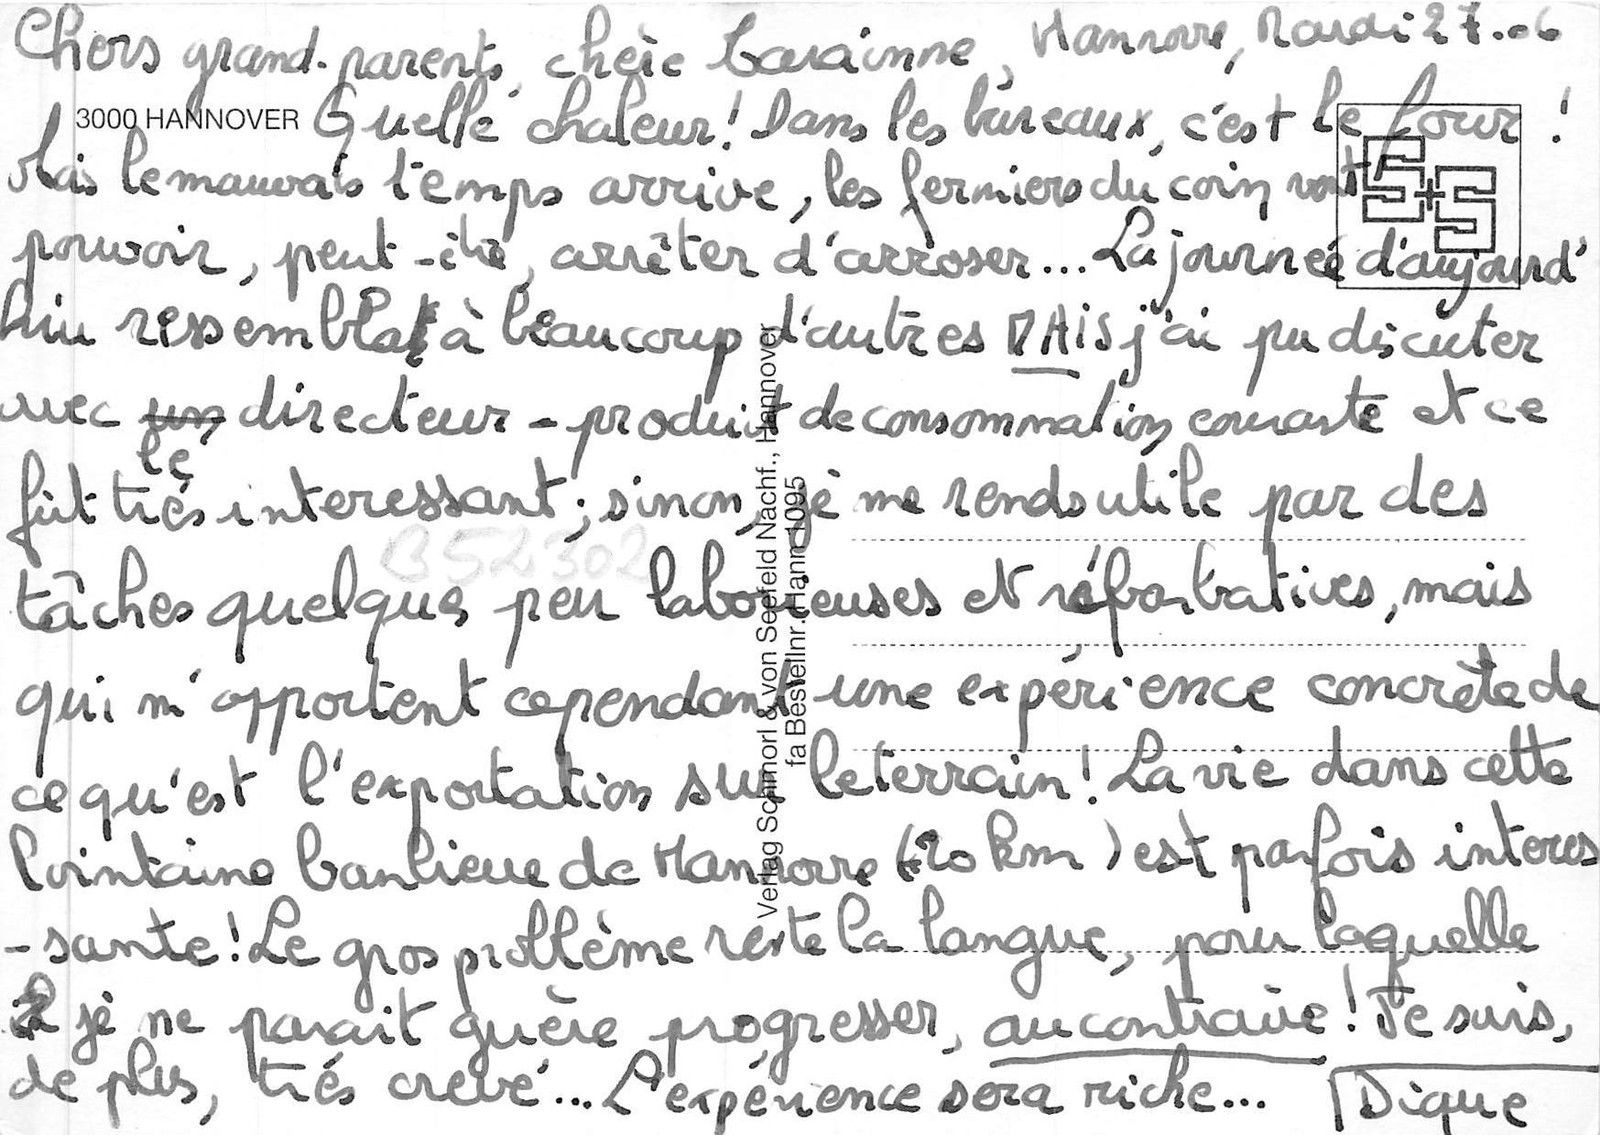 Chers grand-parents, chère Hannovre, Mardi 27.06
3000 HANNOVER Quelle chaleur! Dans les bureaux, c'est le four!
Mais le mauvais temps arrive, les fermiers du coin vont
pouvoir, peut-être, arrêter d'arroser... La journée d'aujourd'
hui ressembla à beaucoup d'autres MAIS j'ai pu discuter
avec un directeur - produit de consommation courante et ce
le
fût très interessant; sinon, je me rends utile par des
B52302
tâches quelque peu laborieuses et rébarbatives, mais
qui m'apportent cependant une expérience concrète de
ce qu'est l'exportation sur le terrain! La vie dans cette
lointaine banlieue de Hannovre (20 km) est parfois interes
-sante! Le gros problème reste la langue, pour laquelle
je ne parait guère progresser, au contraire! Je suis,
de plus, très crevé... L'expérience sera riche... Dique
S+S
Verlag Schmorl & von Seefeld Nachf., Hannover
fa Bestellnr. Hann 1095